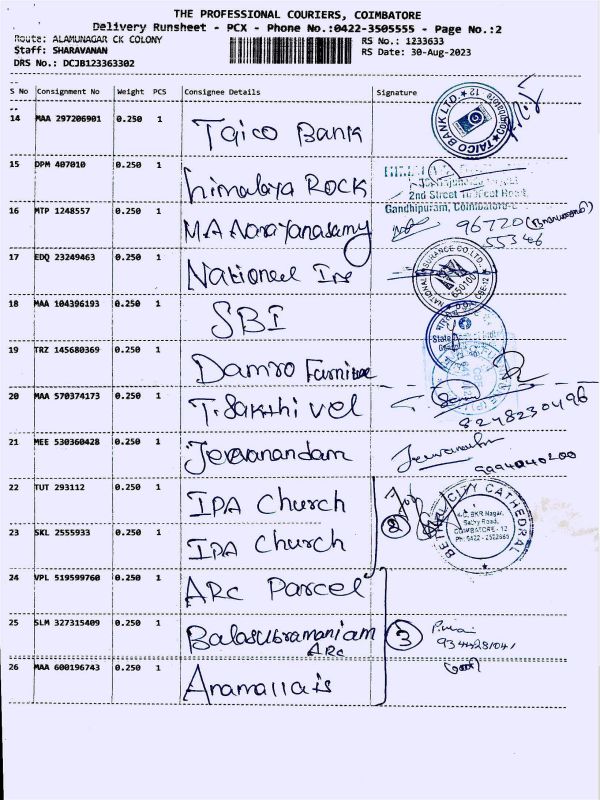 THE PROFESSIONAL COURIERS, COIMBATORE
Delivery Runsheet - PCX - Phone No.:0422-3505555 - Page No.:2
Route: ALAMUNAGAR CK COLONY
RS No.: 1233633
Staff: SHARAVANAN
RS Date: 30-Aug-2023
DRS No.: DCJB123363302
S No Consignment No Weight PCS Consignee Details Signature
14 MAA 297206901 0.250 1 Taico Bank
TAICO BANK LTD.
15 DPM 407010 0.250 1 himalaya ROCK
2nd Street
Gandhipuram, Coimbatore-
16 MTP 1248557 0.250 1 M.A Narayanasamy 96720
55346
17 EDQ 23249463 0.250 1 National Ins
NATIONAL INSURANCE CO.LTD.
18 MAA 104396193 0.250 1 SBI
State
19 TRZ 145680369 0.250 1 Damro Furniture
20 MAA 570374173 0.250 1 T. Sakthi vel
8248230496
21 MEE 530360428 0.250 1 Jeevanandam
9994040200
22 TUT 293112 0.250 1 IPA Church
BETHEL CITY CATHEDRAL
BKR Nagar,
Sathy Road,
COIMBATORE - 12
23 SKL 2555933 0.250 1 IPA Church
2
24 VPL 519599760 0.250 1 ARC Parcel
25 SLM 327315409 0.250 1 Balasubramaniam
ARC
3
9344281041
26 MAA 600196743 0.250 1 Anamallais